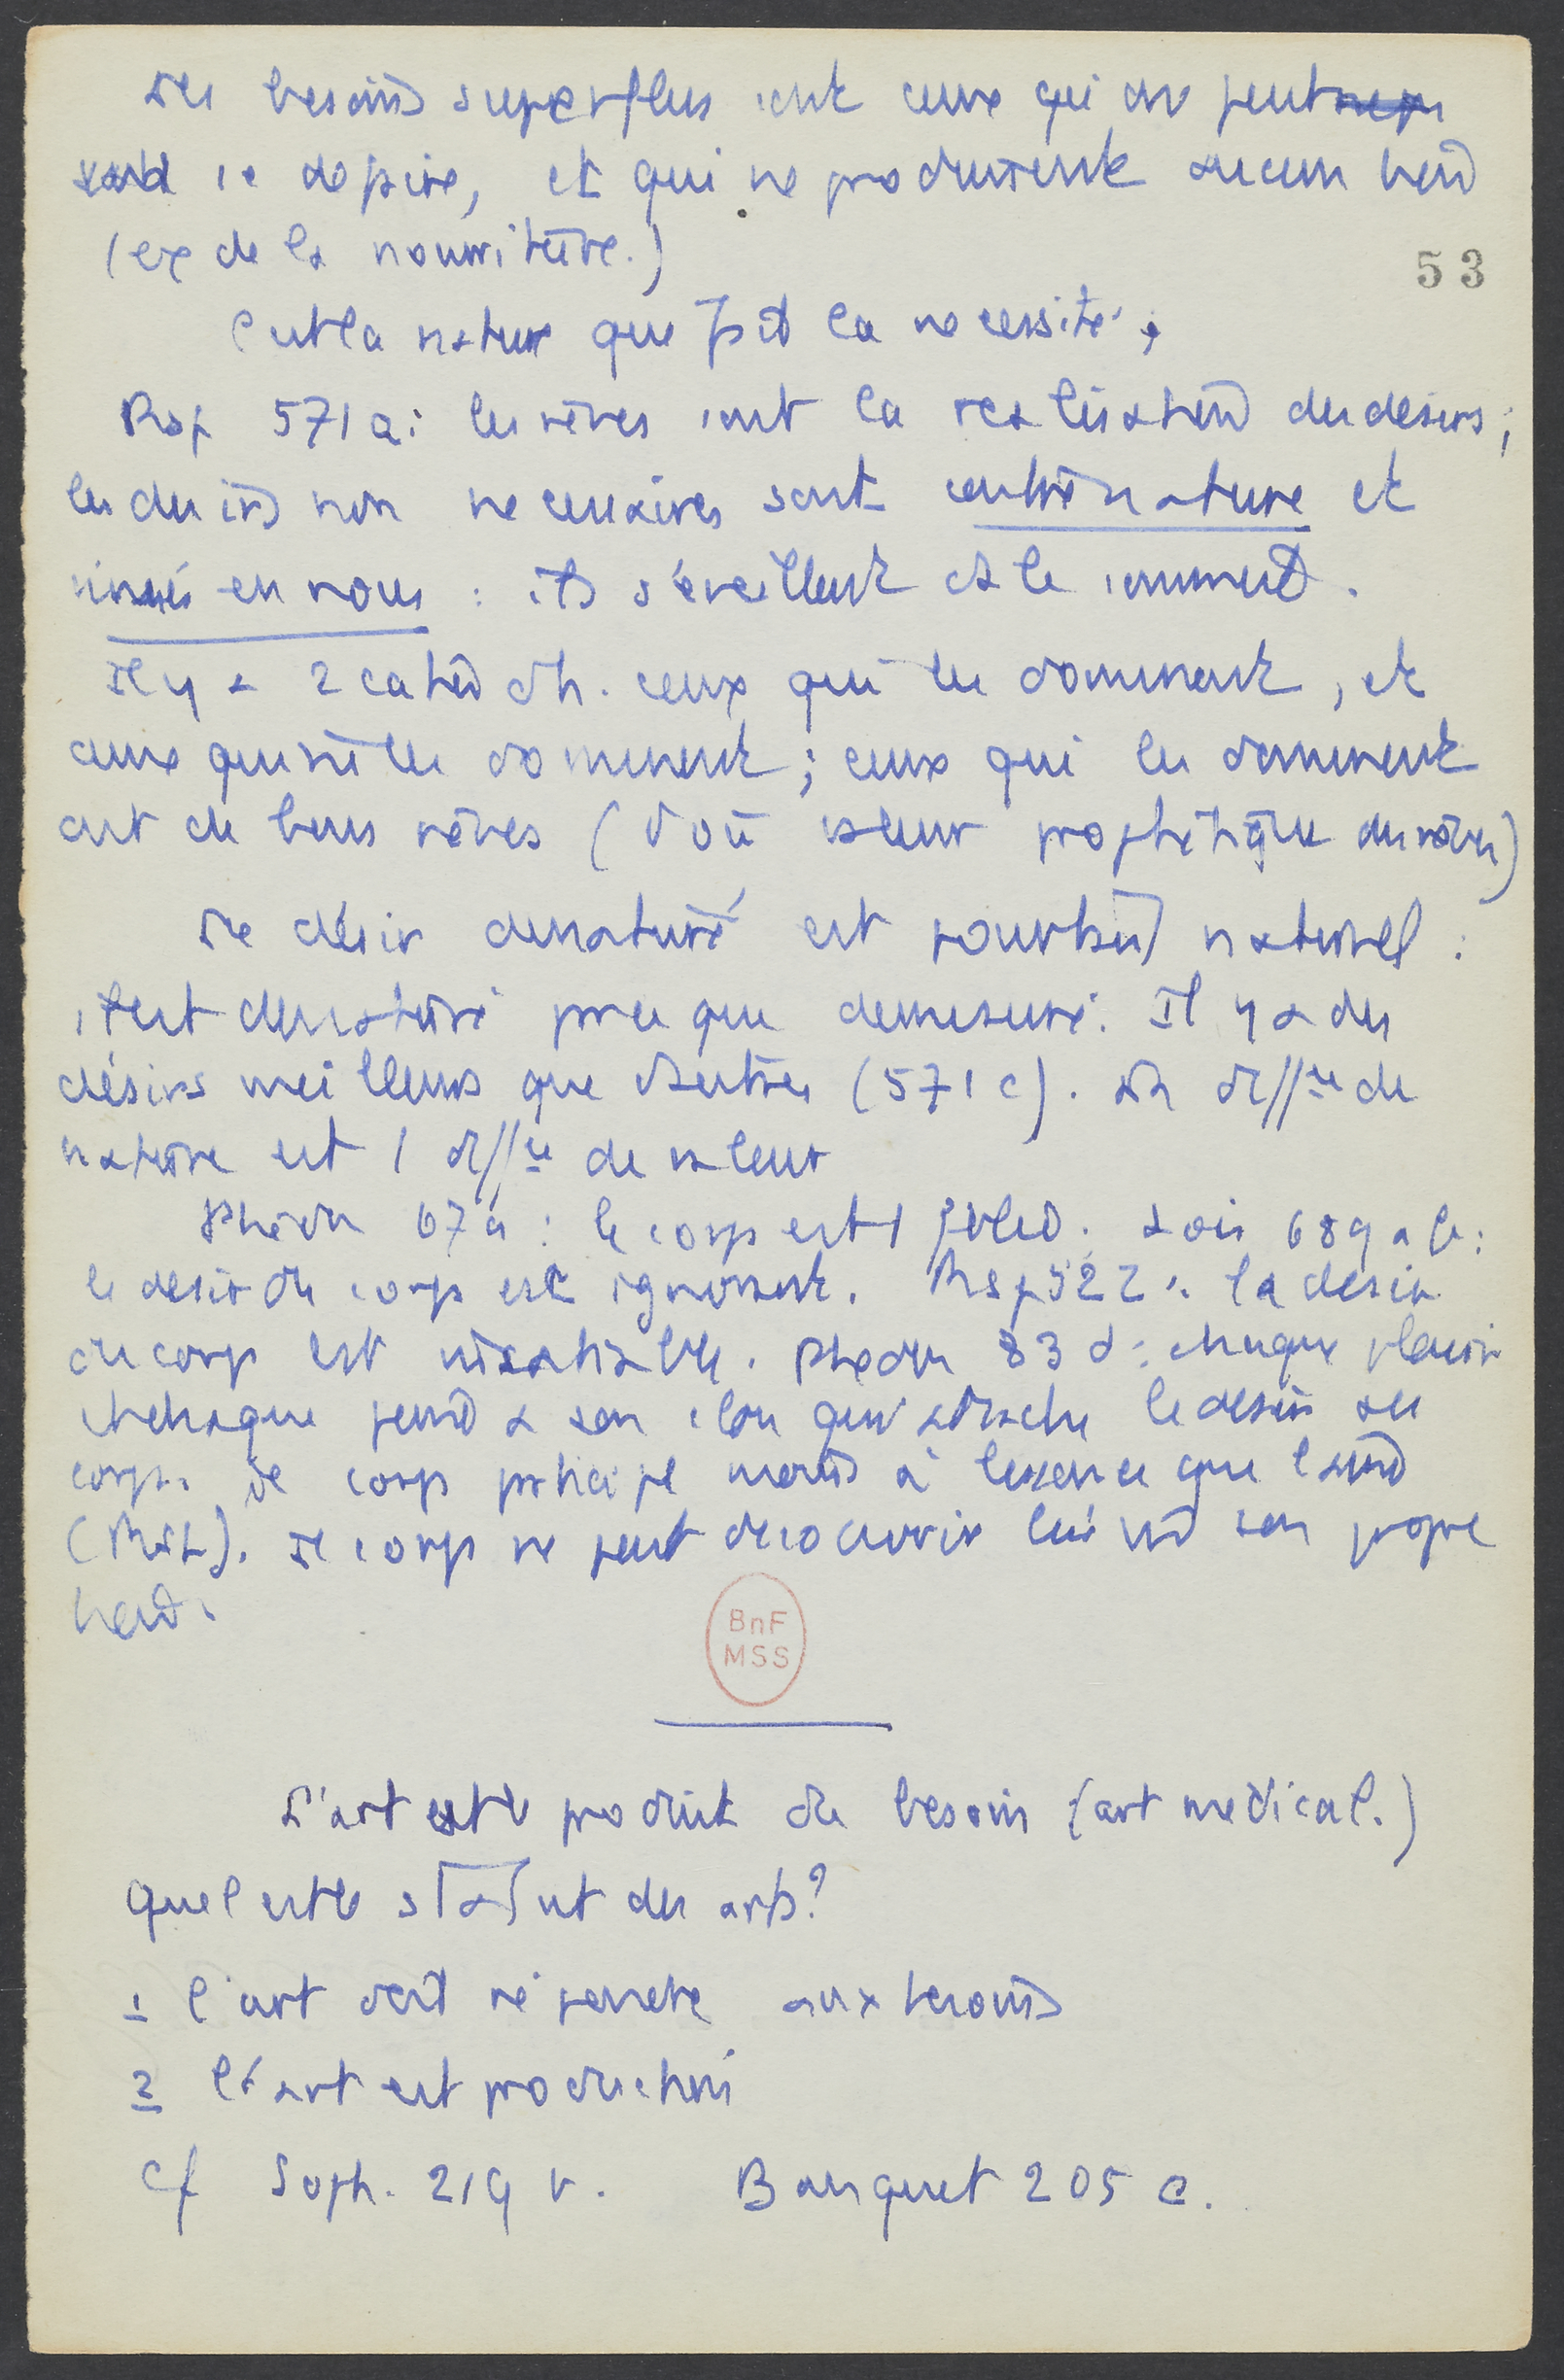 Les besoins superflus sont ceux qui on peut
se defaire, et qui ne produisent aucun bien
(ex de la nourriture.)
53
C'est la nature que fait la necessité.
Rep 571 a : les rêves sont la realisation des desirs ;
les desirs non necessaires sont contre nature et
innés en nous : ils s'éveillent et le sommeil.
Il y a 2 cat d'h. ceux qui les dominent, et
ceux qui ne les dominent ; ceux qui les dominent
ont de bons rêves (d'où valeur prophétique des rêves)
Le désir denaturé est pourtant naturel :
il est denaturé parce que demesuré. Il y a des
désirs meilleurs que d'autres (571 c). La diffce de
nature est 1 diffce de valeur
Phédon 67 a : le corps est 1 folie. Lois 689 a b :
le desir du corps est ignorant. Rep 522 : le desir
du corps est insatiable. Phedon 83 d : chaque plaisir
et chaque peine a son clou qui attache le desir au
corps. Le corps participe moins à l'essence que l'âme
(Rep). Le corps ne peut decouvrir lui même son propre
bien.
BnF
MSS
L'art est le produit du besoin (art medical.)
Quel est le statut des arts?
1 l'art doit répondre aux besoins
2 l'art est production
Cf Soph. 219 b. Banquet 205 c.